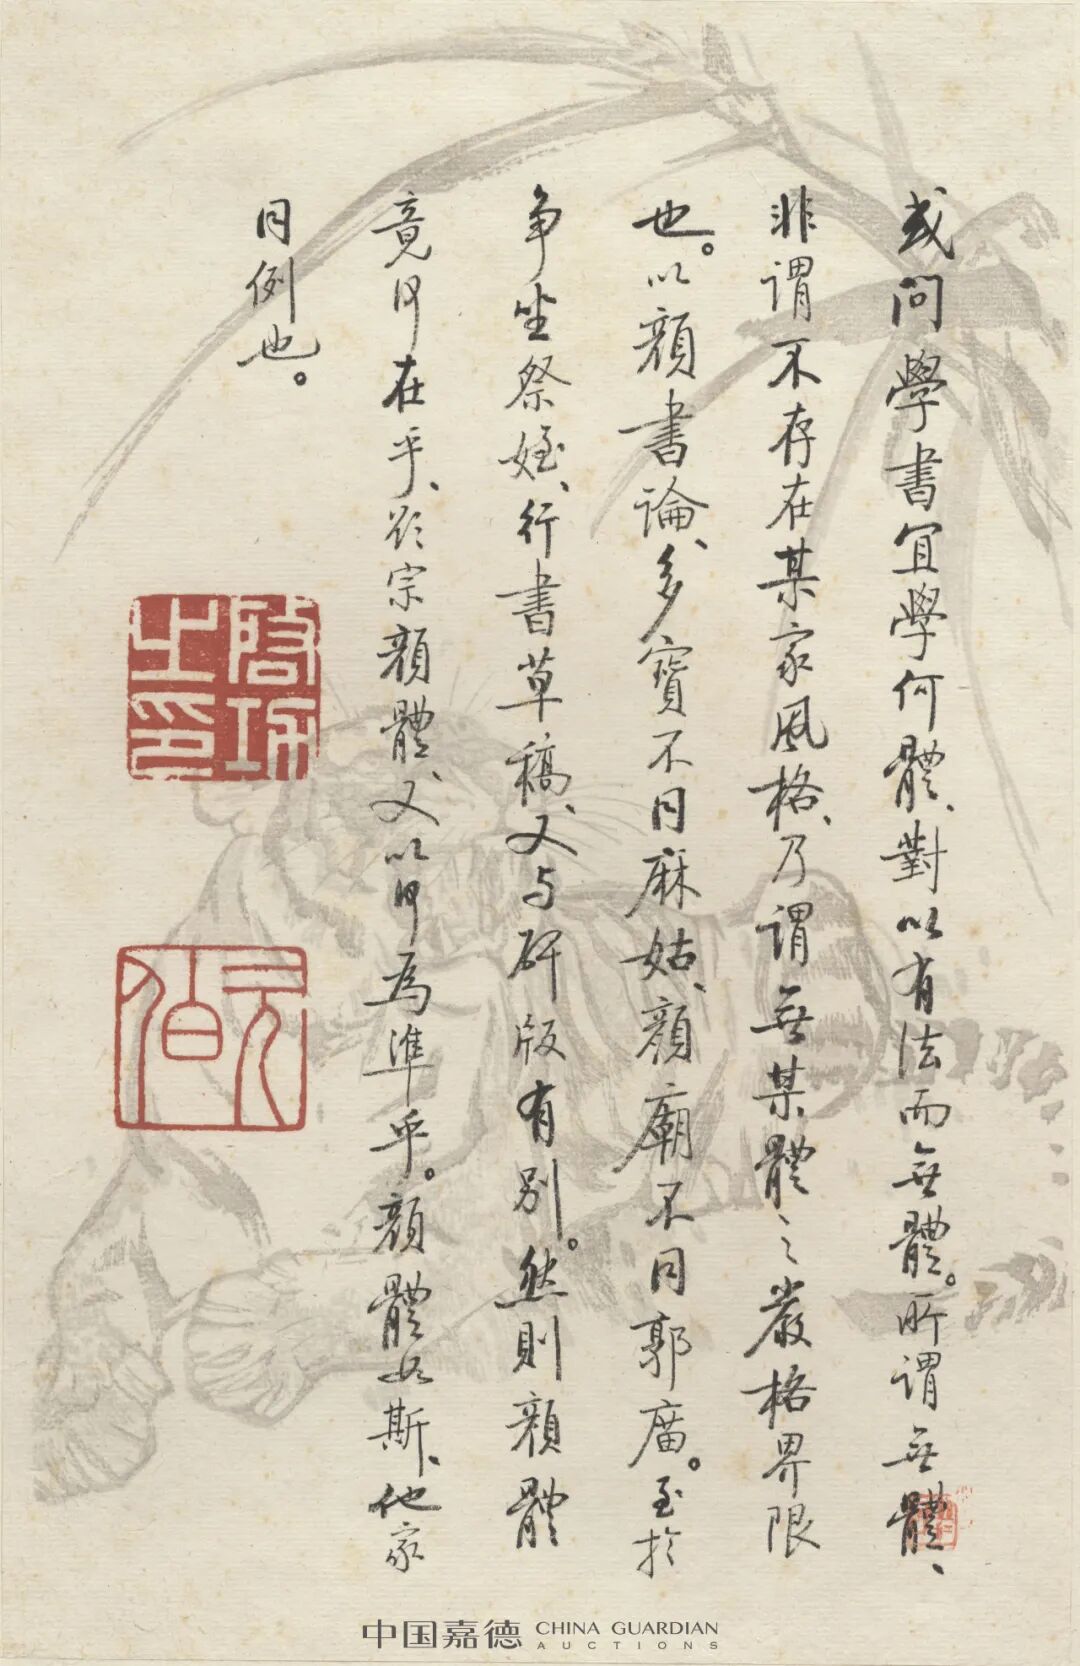 或問學書宜學何體、對以有法而無體。所謂無體、
非謂不存在某家風格、乃謂無某體之嚴格界限
也。以顏書論、多寶不同麻姑、顏廟不同郭廟。至於
爭坐祭姪、行書草稿、又与碑版有别。然則顏體
竟何在乎、欲宗顏體、又以何為準乎。顏體如斯、他家
同例也。
啓功之印
元伯
中国嘉德 CHINA GUARDIAN
AUCTIONS